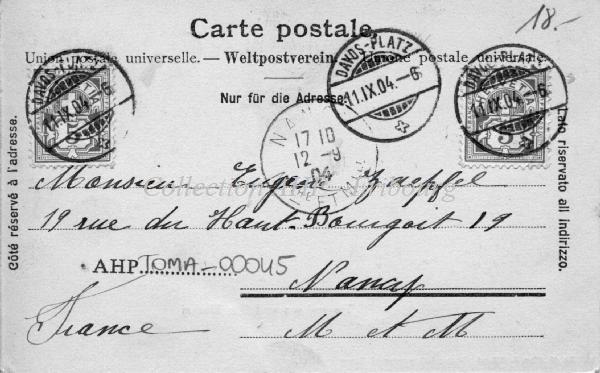 Carte postale.
18.-
Union postale universelle. — Weltpostverein. — Unione postale universale.
Nur für die Adresse.
DAVOS-PLATZ
11.IX.04.-6
DAVOS-PLATZ
11.IX.04.-6
DAVOS-PLATZ
11.IX.04.-6
HELVETIA
5
17 10
12 - 9
04
Côté réservé à l'adresse.
Lato riservato all indirizzo.
Monsieur Eugène
19 rue du Haut-Bourgeois 19
AHP TOMA-00045
Nancy
France
M et M
Collection